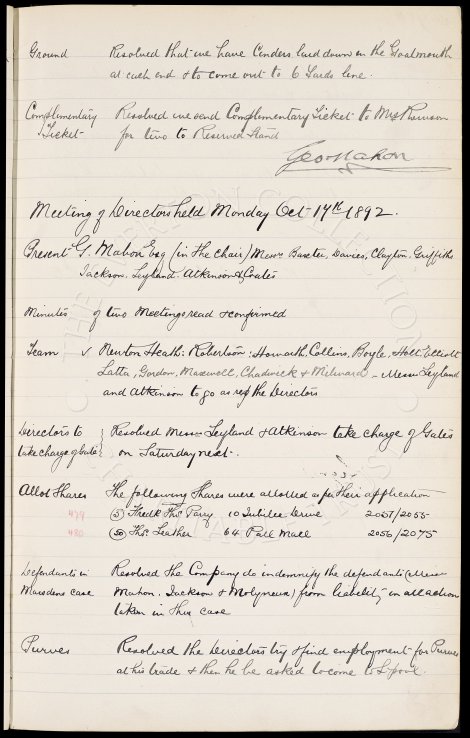 Ground Resolved that we have Cinders laid down in the Goalmouth
at each end & to come out to 6 Yards line.
Complimentary Resolved we send Complimentary Ticket to Mrs
Ticket for two to Reserved Stand
Geo Mahon
Meeting of Directors held Monday Oct 17th 1892.
Present G. Mahon Esq (in the chair) Messrs Baxter, Davies, Clayton, Griffiths
Jackson. Leyland. Atkinson & Coates
Minutes of two Meetings read & confirmed
Team v Newton Heath: Robertson: Howarth, Collins, Boyle, Holt, Elliott
Latta, Gordon, Maxwell, Chadwick & Milward - Messrs Leyland
and Atkinson to go as rep the Directors
Directors to Resolved Messrs Leyland & Atkinson take charge of Gates
take charge of Gate on Saturday next.
Allot Shares The following Shares were allotted as per their application
479 (5) Fredk Thos. Parry 10 Jubilee Drive 2051/2055
480 (20) Thos. Leather 64 Pall Mall 2056/2075
Defendants in Resolved the Company do indemnify the defendants (Messrs
Marsdens case Mahon. Jackson & Molyneux) from liability in all action
taken in this case
Purves Resolved the Directors try & find employment for Purves
at his trade & then he be asked to come to L'pool.